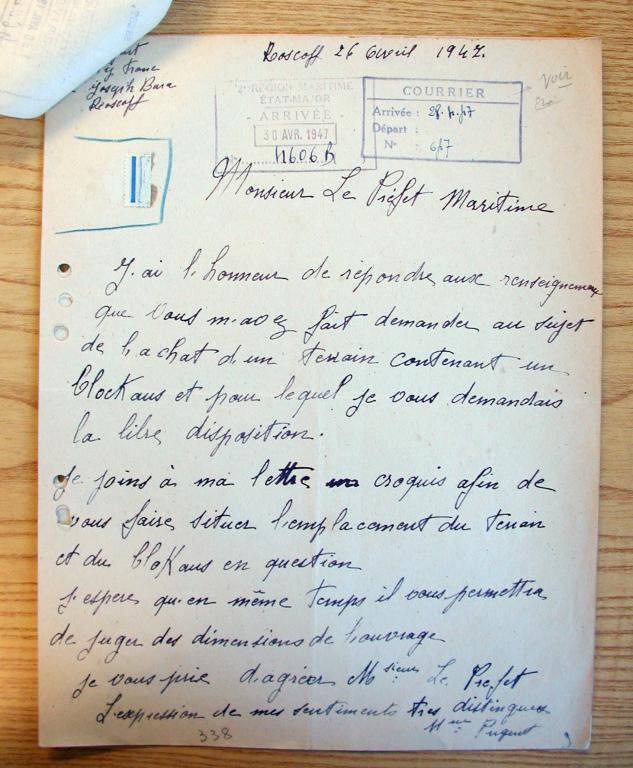 Roscoff 26 Avril 1947.
Joseph Bara
Roscoff
2e RÉGION MARITIME
ÉTAT-MAJOR
ARRIVÉE
30 AVR. 1947
11606 B
COURRIER
Arrivée : 28.4.47
Départ :
N° : 647
Voir
Monsieur Le Préfet Maritime
J'ai l'honneur de répondre aux renseignements
que vous m'avez fait demander au sujet
de l'achat d'un terrain contenant un
blockaus et pour lequel je vous demandais
la libre disposition.
Je joins à ma lettre un croquis afin de
vous faire situer l'emplacement du terrain
et du blokaus en question
j'espere qu'en même temps il vous permettra
de juger des dimensions de l'ouvrage
je vous prie d'agréer Msieur Le Préfet
L'expression de mes sentiments très distingués
Mme
338